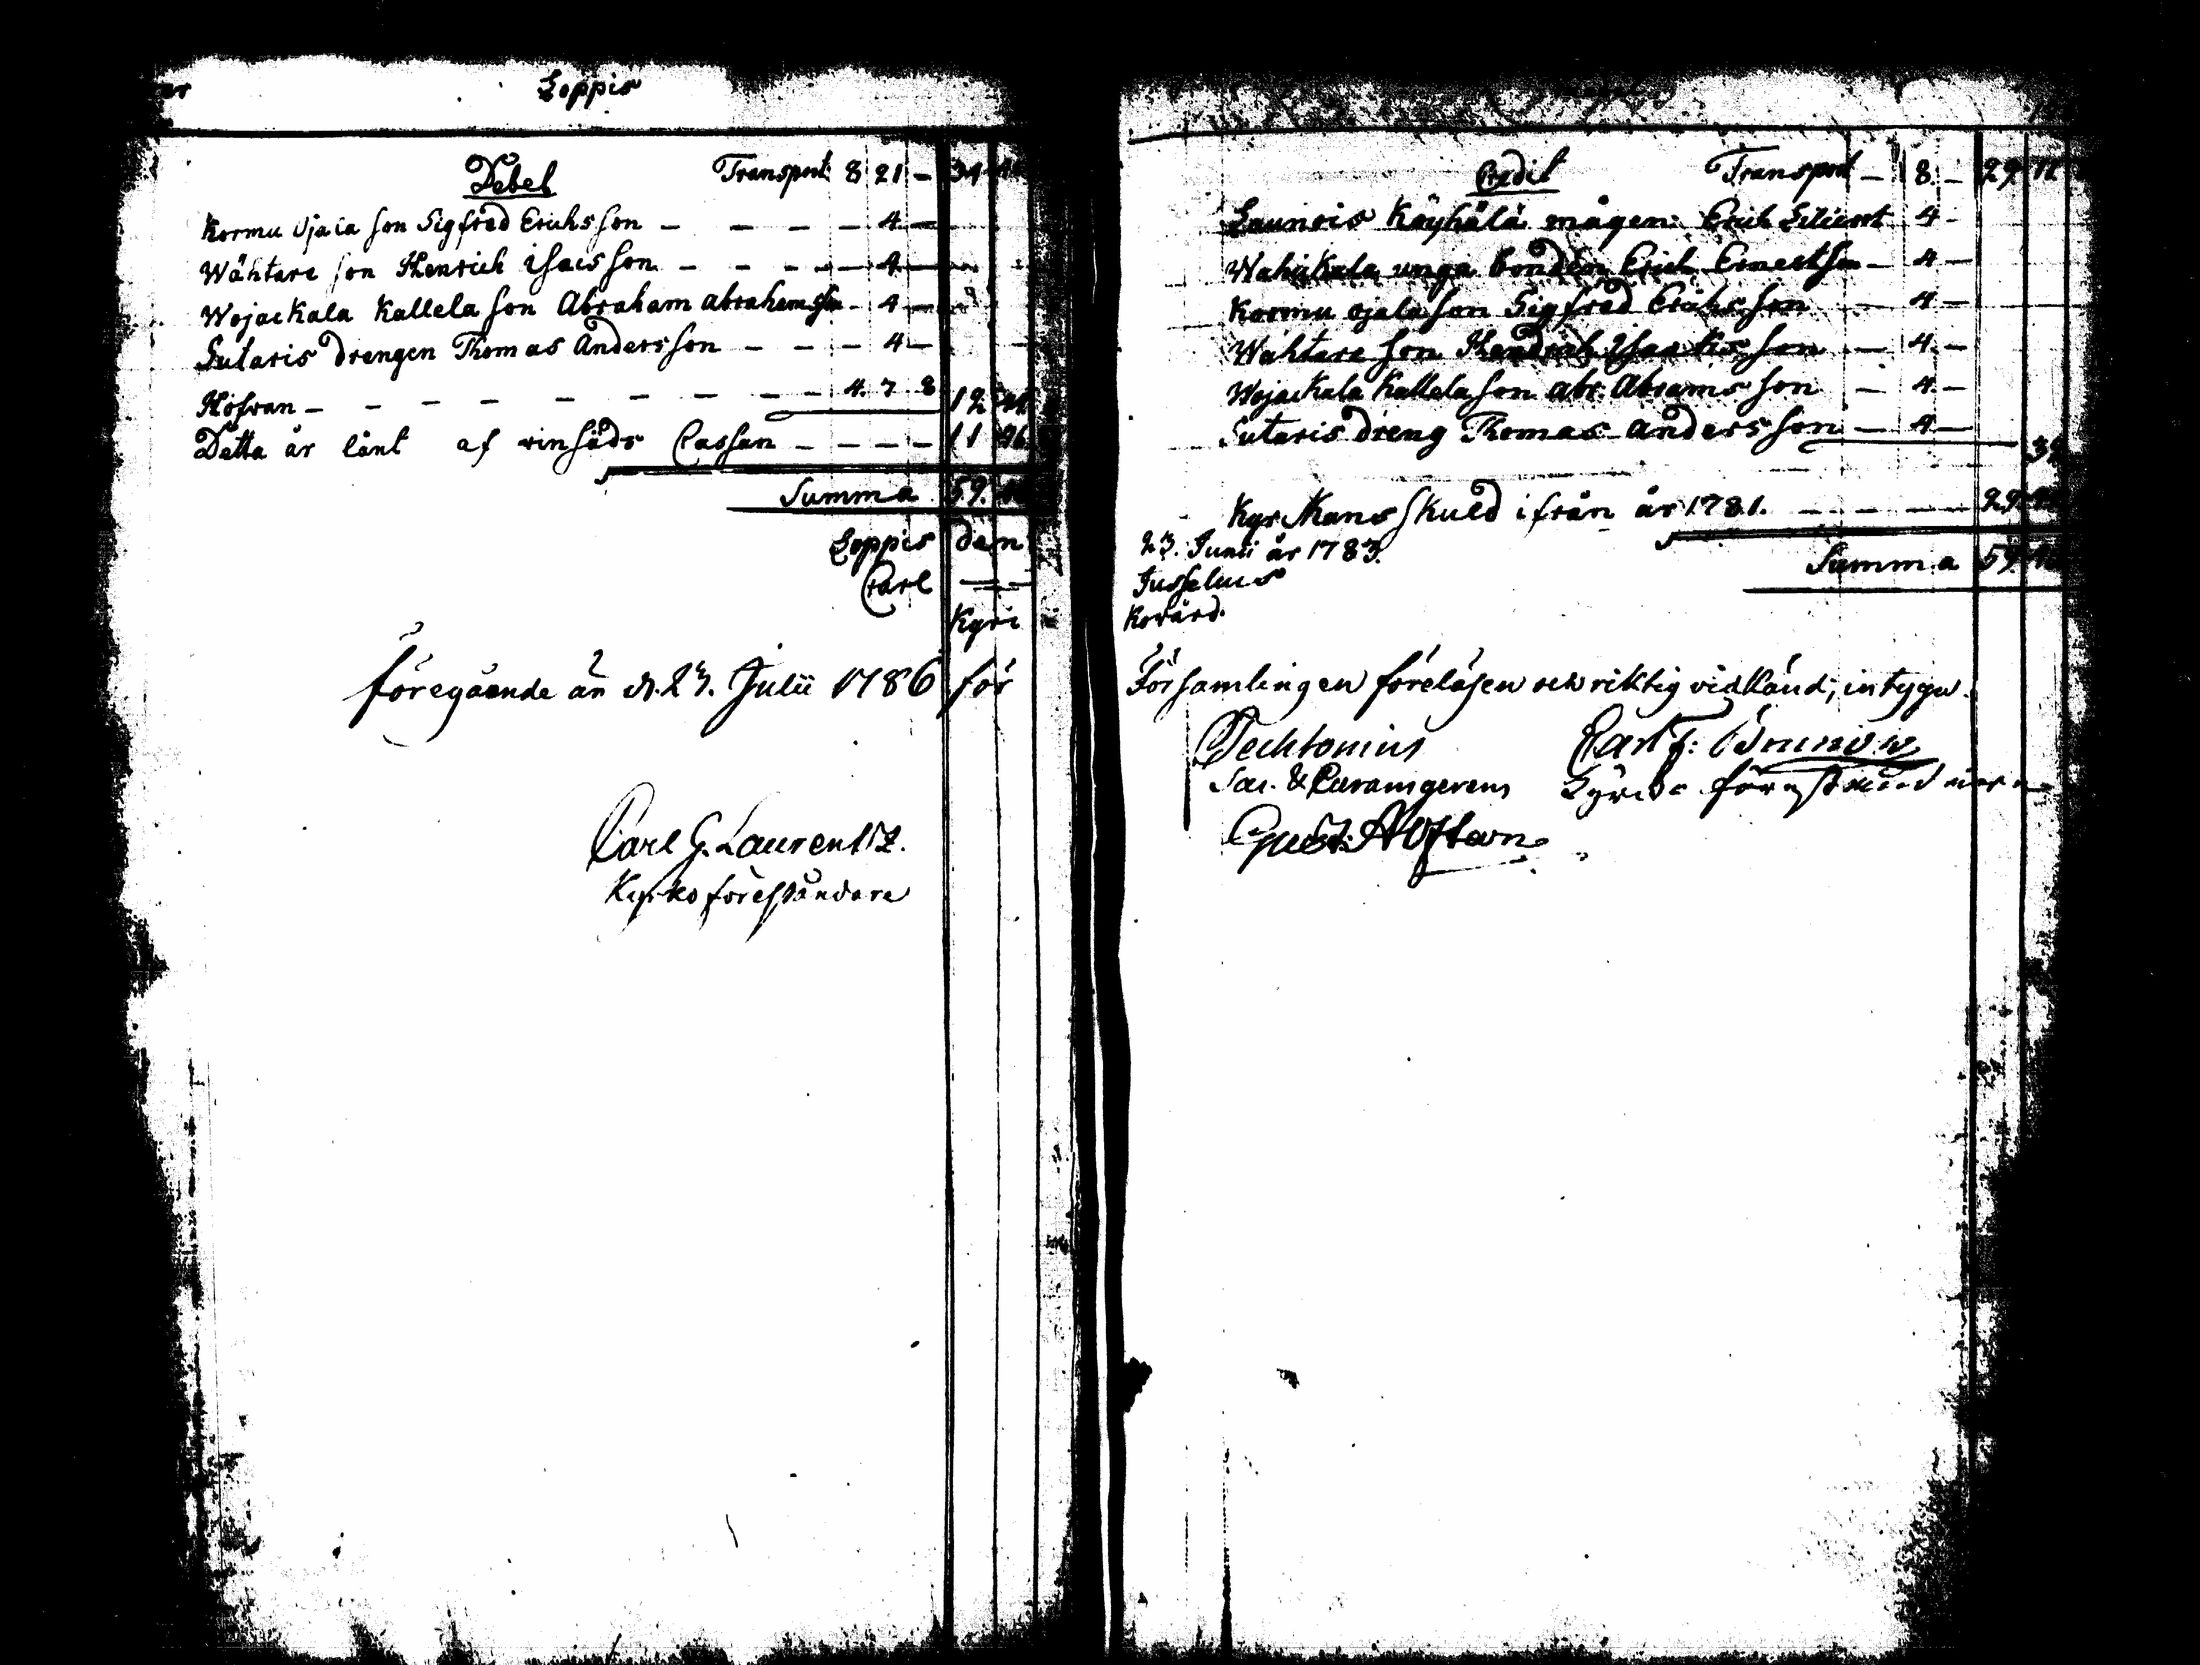 Loppis
Debet Transport 8 21 - 34
Kormu Ojala son Sigfred Erichsson - - - - 4 -
Wähtare son Henrich Isacsson - - - - 4 -
Wojackala Kallela son Abraham Abrahamsson - 4 -
Sutaris Drengen Thomas Andersson - - - 4 -
Hofvan - - - - - - - - 4. 7 8 12
Detta är lånt af vinsäds Cassan - - - - 11 26
Summa 59.
Loppis den
Carl
Kyrc
föregående än d. 23. Julii 1786 för
Carl G. Laurentz.
Kyrko föreståndare
Credit Transport - 8 - 29 11
Launois Köyhälä mågen Erich 4 -
Wahikala unga bonden Erich Ernestson - 4 -
Kormu Ojala son Sigfred Erichsson - 4 -
Wähtare son Hendrich Isaacksson - 4 -
Wojackala Kallela son Abr. Abramsson - 4 -
Sutaris dreng Thomas Andersson - 4 -
Kyrckans skuld ifrån år 1781. - - - - 29
23. Junii år 1783.
Summa 59
Jusselius
kovärd.
Församlingen föreläsen och riktig vidkänd; intyga.
Techtonius Carl F: Brunow
Sac. & Curam gerens Kyrcko föreståndare
Gust: Alftan